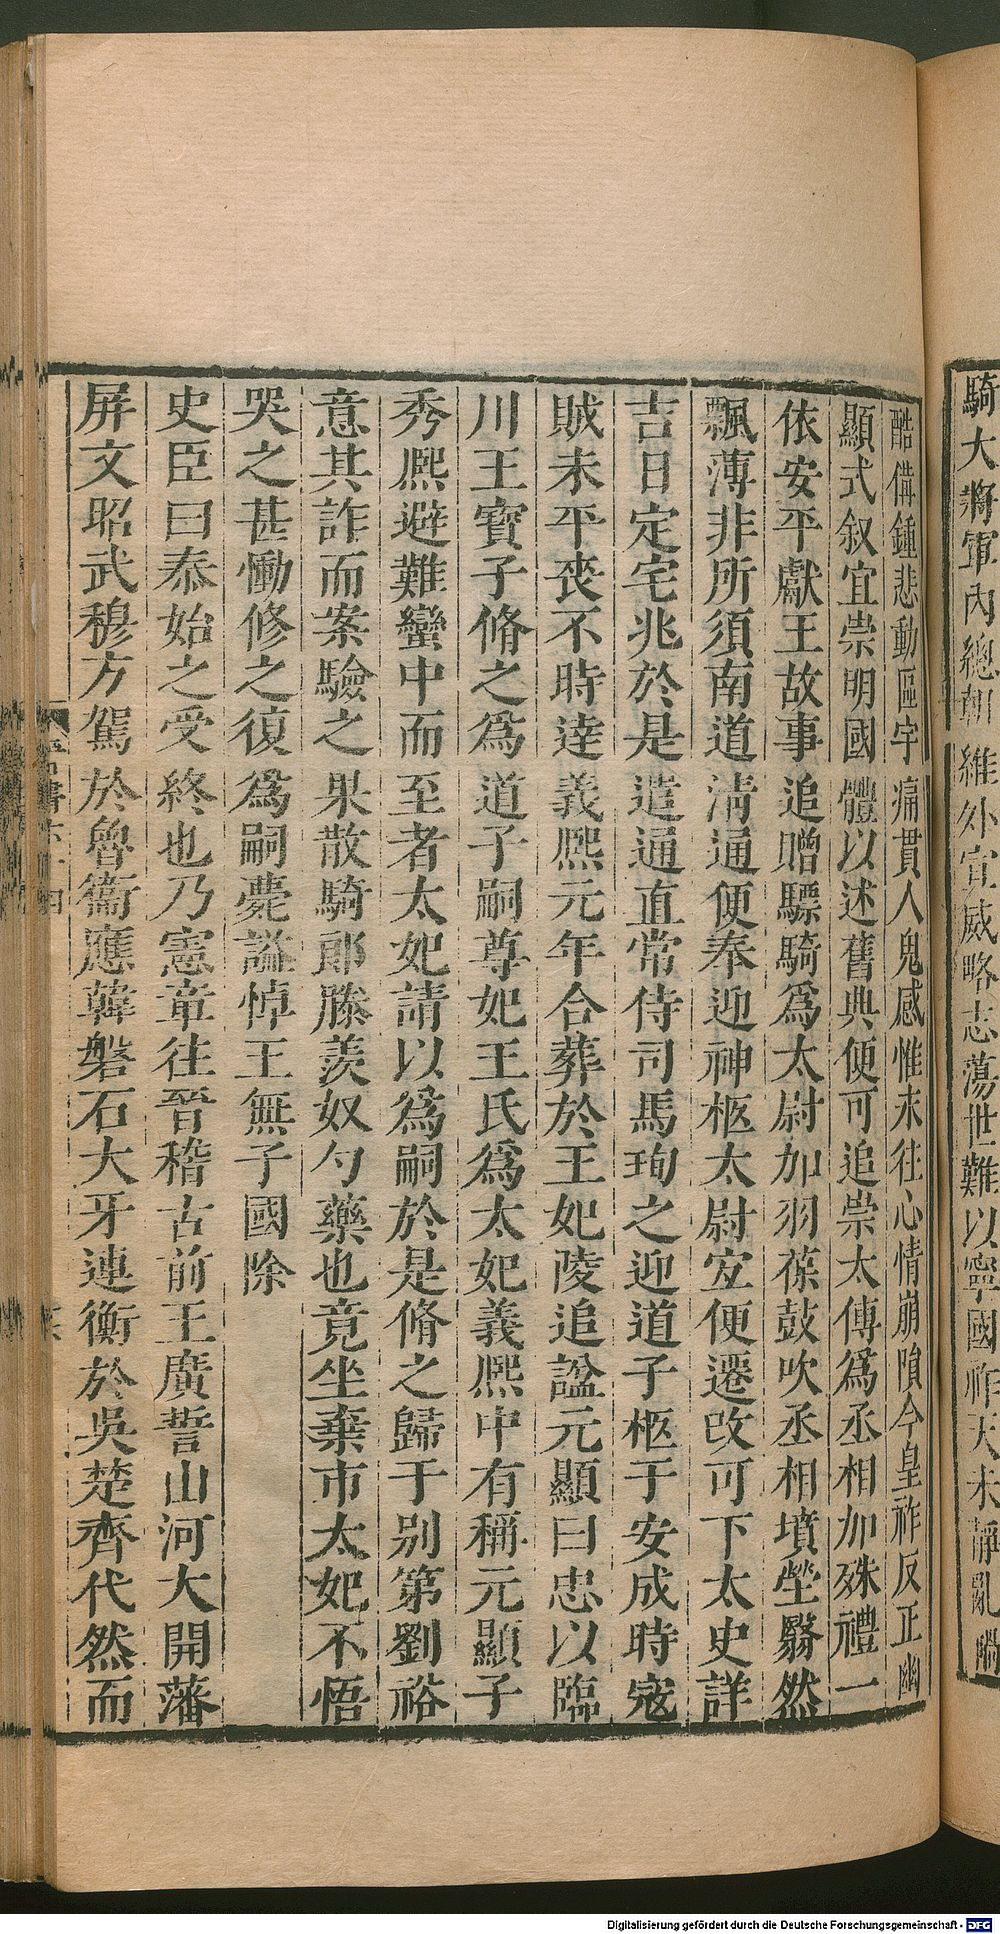 騎大將軍內總朝維外宣威略志蕩世難以寧國祚天未靜亂禍
酷備鍾悲動區宇痛貫人鬼感惟永往心情崩隕今皇祚反正幽
顯式叙宜崇明國體以述舊典便可追崇太傅爲丞相加殊禮一
依安平獻王故事追贈驃騎爲太尉加羽葆鼓吹丞相墳塋翳然
飄薄非所須南道淸通便奉迎神柩太尉宜便遷改可下太史詳
吉日定宅兆於是遣通直常侍司馬珣之迎道子柩于安成時寇
賊未平喪不時達義熙元年合葬於王妃陵追諡元顯曰忠以臨
川王寶子脩之爲道子嗣尊妃王氏爲太妃義熙中有稱元顯子
秀熙避難蠻中而至者太妃請以爲嗣於是脩之歸于别第劉裕
意其詐而案驗之果散騎郎滕羨奴勺藥也竟坐棄市太妃不悟
哭之甚慟修之復爲嗣薨謚悼王無子國除
史臣曰泰始之受終也乃憲章往晉稽古前王廣誓山河大開藩
屏文昭武穆方駕於魯衞應韓磐石犬牙連衡於吳楚齊代然而
晉書六十四
Digitalisierung gefördert durch die Deutsche Forschungsgemeinschaft - DFG